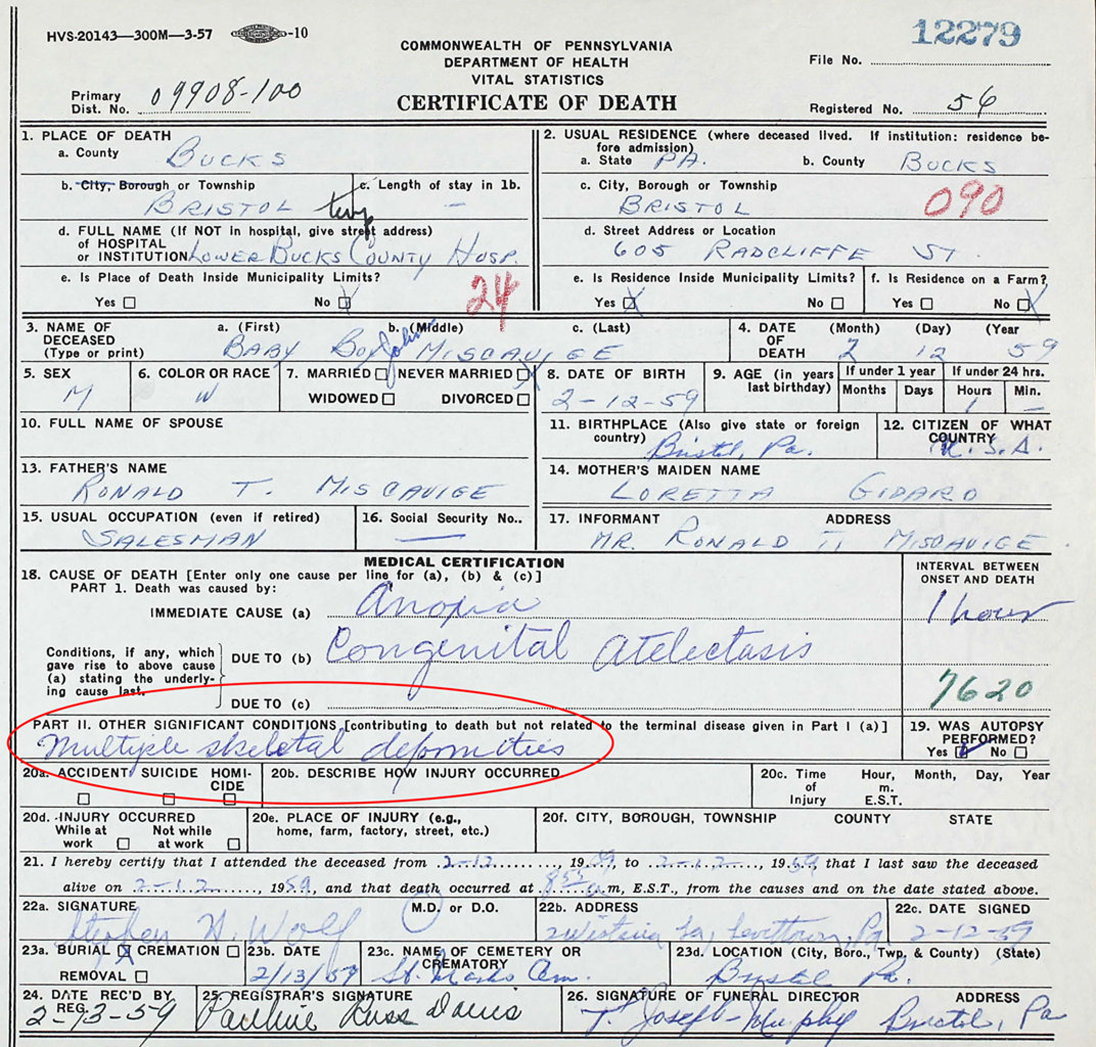 HVS-20143—300M—3-57 -10
12279
COMMONWEALTH OF PENNSYLVANIA
DEPARTMENT OF HEALTH
VITAL STATISTICS
CERTIFICATE OF DEATH
File No.
Primary Dist. No. 09908-100
Registered No. 56
1. PLACE OF DEATH
a. County BUCKS
b. City, Borough or Township BRISTOL twp
c. Length of stay in 1b. —
d. FULL NAME (If NOT in hospital, give street address) of HOSPITAL or INSTITUTION LOWER BUCKS COUNTY HOSP.
e. Is Place of Death Inside Municipality Limits?
Yes No
24
2. USUAL RESIDENCE (where deceased lived. If institution: residence before admission)
a. State PA. b. County BUCKS
c. City, Borough or Township BRISTOL
090
d. Street Address or Location
605 RADCLIFFE ST.
e. Is Residence Inside Municipality Limits? f. Is Residence on a Farm?
Yes X No Yes No X
3. NAME OF DECEASED (Type or print) a. (First) b. (Middle) c. (Last)
BABY BOY John MISCAVIGE
4. DATE OF DEATH (Month) (Day) (Year
2 12 59
5. SEX M
6. COLOR OR RACE W
7. MARRIED NEVER MARRIED X
WIDOWED DIVORCED
8. DATE OF BIRTH
2-12-59
9. AGE (in years last birthday) If under 1 year If under 24 hrs.
Months Days Hours Min.
1 —
10. FULL NAME OF SPOUSE
11. BIRTHPLACE (Also give state or foreign country) Bristol, Pa.
12. CITIZEN OF WHAT COUNTRY U.S.A.
13. FATHER'S NAME
RONALD T. MISCAVIGE
14. MOTHER'S MAIDEN NAME
LORETTA GIDARO
15. USUAL OCCUPATION (even if retired)
SALESMAN
16. Social Security No.. —
17. INFORMANT ADDRESS
MR. RONALD T. MISCAVIGE
MEDICAL CERTIFICATION
18. CAUSE OF DEATH [Enter only one cause per line for (a), (b) & (c)]
INTERVAL BETWEEN ONSET AND DEATH
PART 1. Death was caused by:
IMMEDIATE CAUSE (a) Anoxia 1 hour
Conditions, if any, which gave rise to above cause (a) stating the underlying cause last.
DUE TO (b) Congenital Atelectasis
DUE TO (c)
7620
PART II. OTHER SIGNIFICANT CONDITIONS [contributing to death but not related to the terminal disease given in Part I (a)]
Multiple skeletal deformities
19. WAS AUTOPSY PERFORMED?
Yes No
20a. ACCIDENT SUICIDE HOMICIDE
20b. DESCRIBE HOW INJURY OCCURRED
20c. Time of Injury Hour, m. E.S.T. Month, Day, Year
20d. INJURY OCCURRED
While at work Not while at work
20e. PLACE OF INJURY (e.g., home, farm, factory, street, etc.)
20f. CITY, BOROUGH, TOWNSHIP COUNTY STATE
21. I hereby certify that I attended the deceased from 2-12, 1959 to 2-12, 1959 that I last saw the deceased
alive on 2-12, 1959, and that death occurred at 8 55 a.m, E.S.T., from the causes and on the date stated above.
22a. SIGNATURE M.D. or D.O.
Stephen H. Wolf
22b. ADDRESS
Levittown, Pa
22c. DATE SIGNED
2-12-59
23a. BURIAL X CREMATION
REMOVAL
23b. DATE
2/13/59
23c. NAME OF CEMETERY OR CREMATORY
St. Marks Cem.
23d. LOCATION (City, Boro., Twp, & County) (State)
Bristol Pa.
24. DATE REC'D BY REG.
2-13-59
25. REGISTRAR'S SIGNATURE
Pauline Russ Davis
26. SIGNATURE OF FUNERAL DIRECTOR ADDRESS
T. Joseph Murphy Bristol, Pa